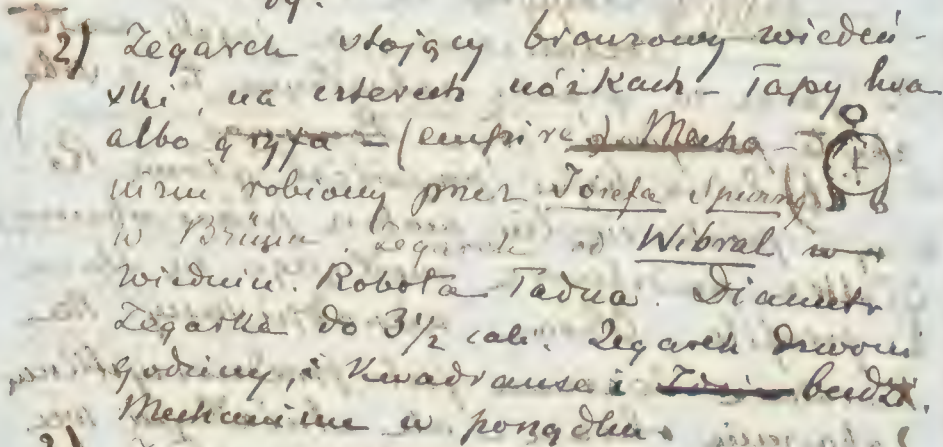 2) Zegarek stojący bronzowy wiedeń-
ski, na czterech nóżkach - Łapy lwa
albo gryfa - (empire) Mecha-
nizm robiony przez Józefa
w Brünn. Zegarek od Wibral w
Wiedniu. Robota Ładna. Diametr
Zegarka do 3 1/2 cali. Zegarek dzwoni
godziny, i kwadranse i budzi.
Mechanizm w porządku.
2)